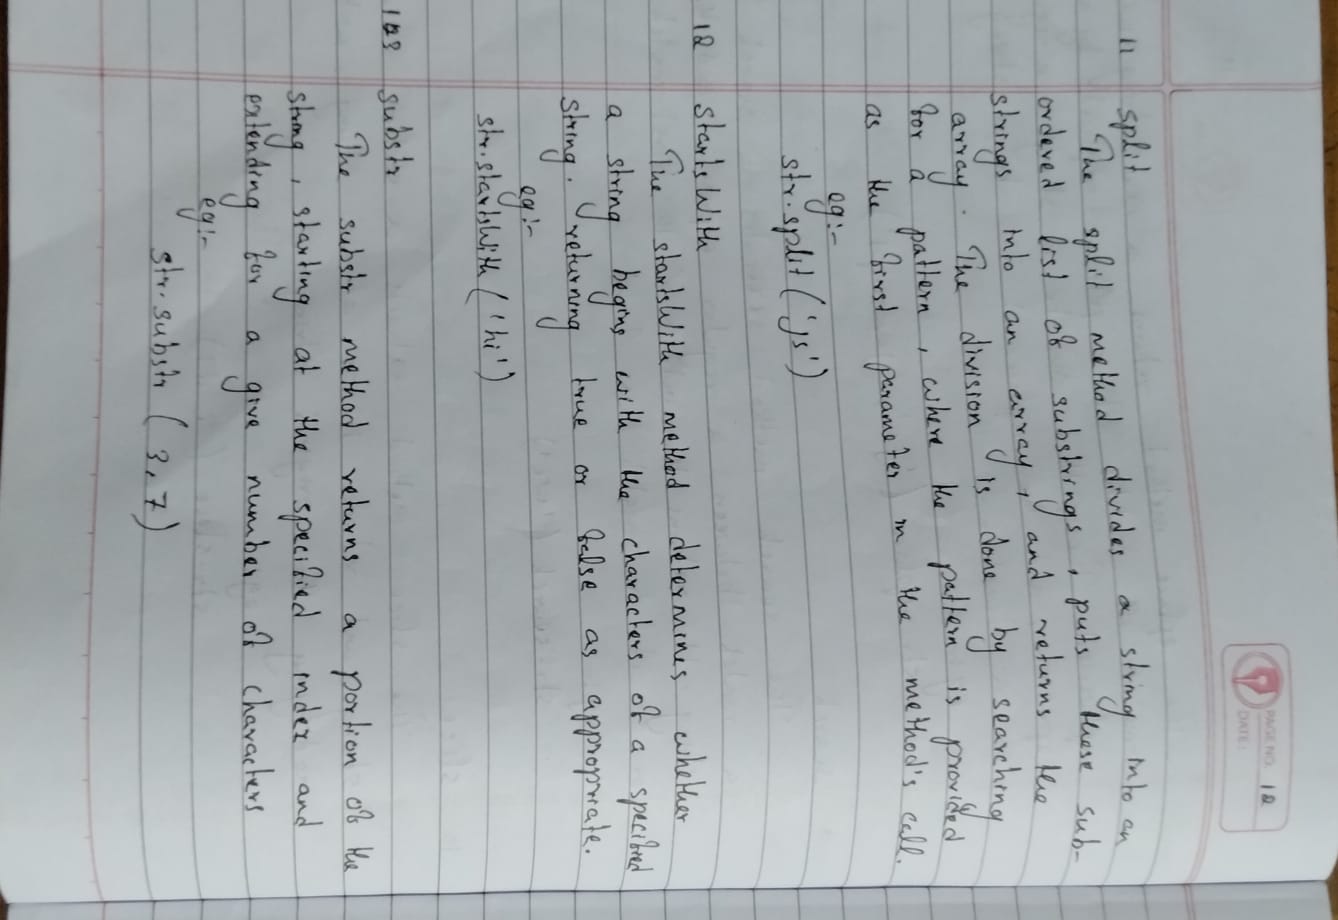 PAGE NO. 12
DATE:
11 split
The split method divides a string into an
ordered list of substrings, puts these sub-
strings into an array, and returns the
array. The division is done by searching
for a pattern, where the pattern is provided
as the first parameter in the method's call.
eg:-
str.split('js')
12 startsWith
The startsWith method determines whether
a string begins with the characters of a specified
string. returning true or false as appropriate.
eg:-
str.startsWith('hi')
13 substr
The substr method returns a portion of the
string, starting at the specified index and
extending for a give number of characters
eg:-
str.substr(3,7)